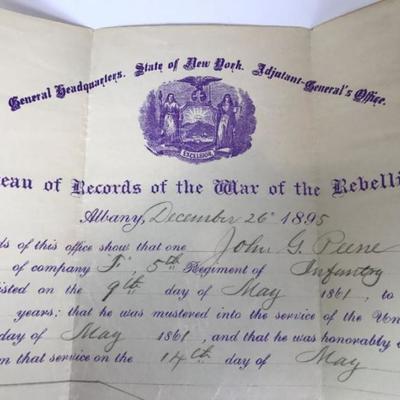 General Headquarters. State of New York. Adjutant-General's Office.
EXCELSIOR
eau of Records of the War of the Rebelli
Albany, December 26" 1895
ds of this office show that one John G. Peene
of company F, 5th Regiment of Infantry
listed on the 9th day of May 1861, to
years; that he was mustered into the service of the Un
day of May 1861, and that he was honorably d
m that service on the 14th day of May